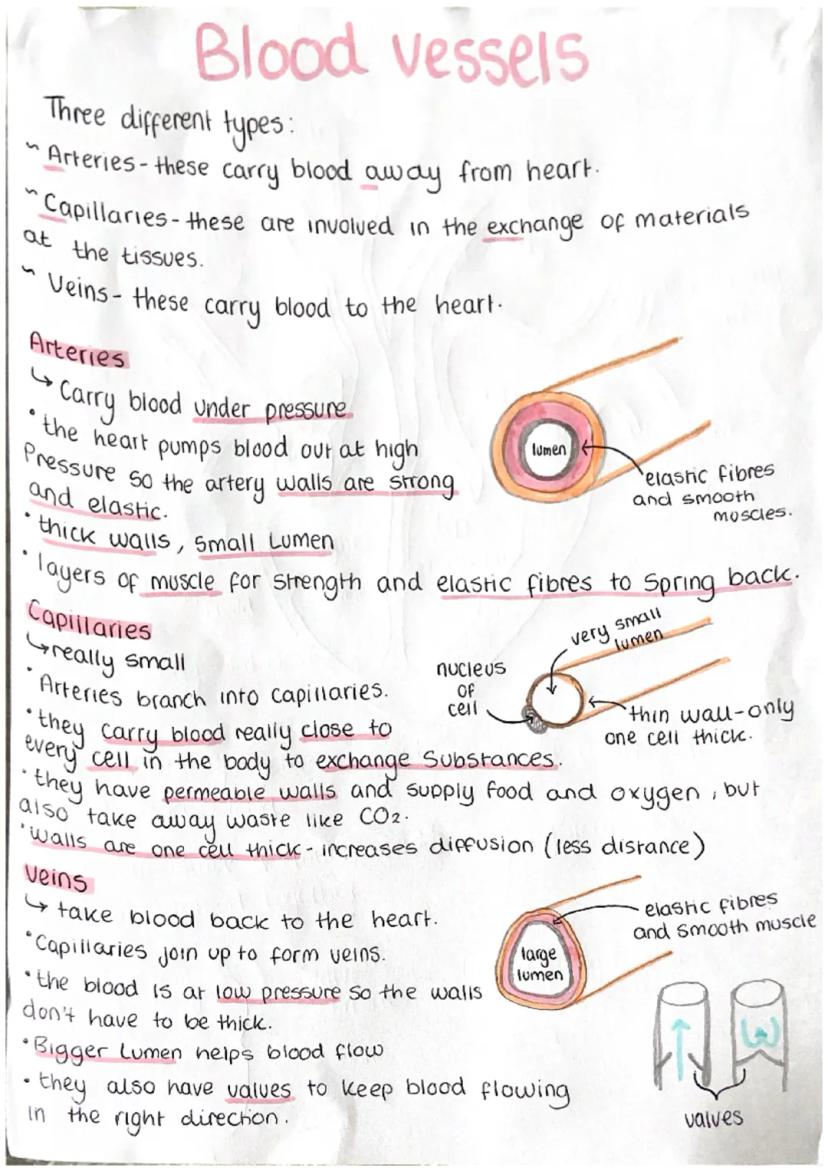 Blood vessels
Three different types:
~ Arteries - these carry blood away from heart.
~ Capillaries - these are involved in the exchange of materials
at the tissues.
~ Veins - these carry blood to the heart.
Arteries
↳ Carry blood under pressure
• the heart pumps blood out at high
Pressure so the artery walls are strong
and elastic.
• thick walls, small Lumen
• layers of muscle for strength and elastic fibres to spring back.
lumen
elastic fibres
and smooth
muscles.
Capillaries
↳ really small
• Arteries branch into capillaries.
• they carry blood really close to
every cell in the body to exchange substances.
• they have permeable walls and supply food and oxygen, but
also take away waste like CO2.
• walls are one cell thick - increases diffusion (less distance)
very small
lumen
nucleus
of
cell
thin wall-only
one cell thick.
Veins
↳ take blood back to the heart.
• Capillaries join up to form veins.
• the blood is at low pressure so the walls
don't have to be thick.
• Bigger Lumen helps blood flow
• they also have values to keep blood flowing
in the right direction.
large
lumen
elastic fibres
and smooth muscle
valves